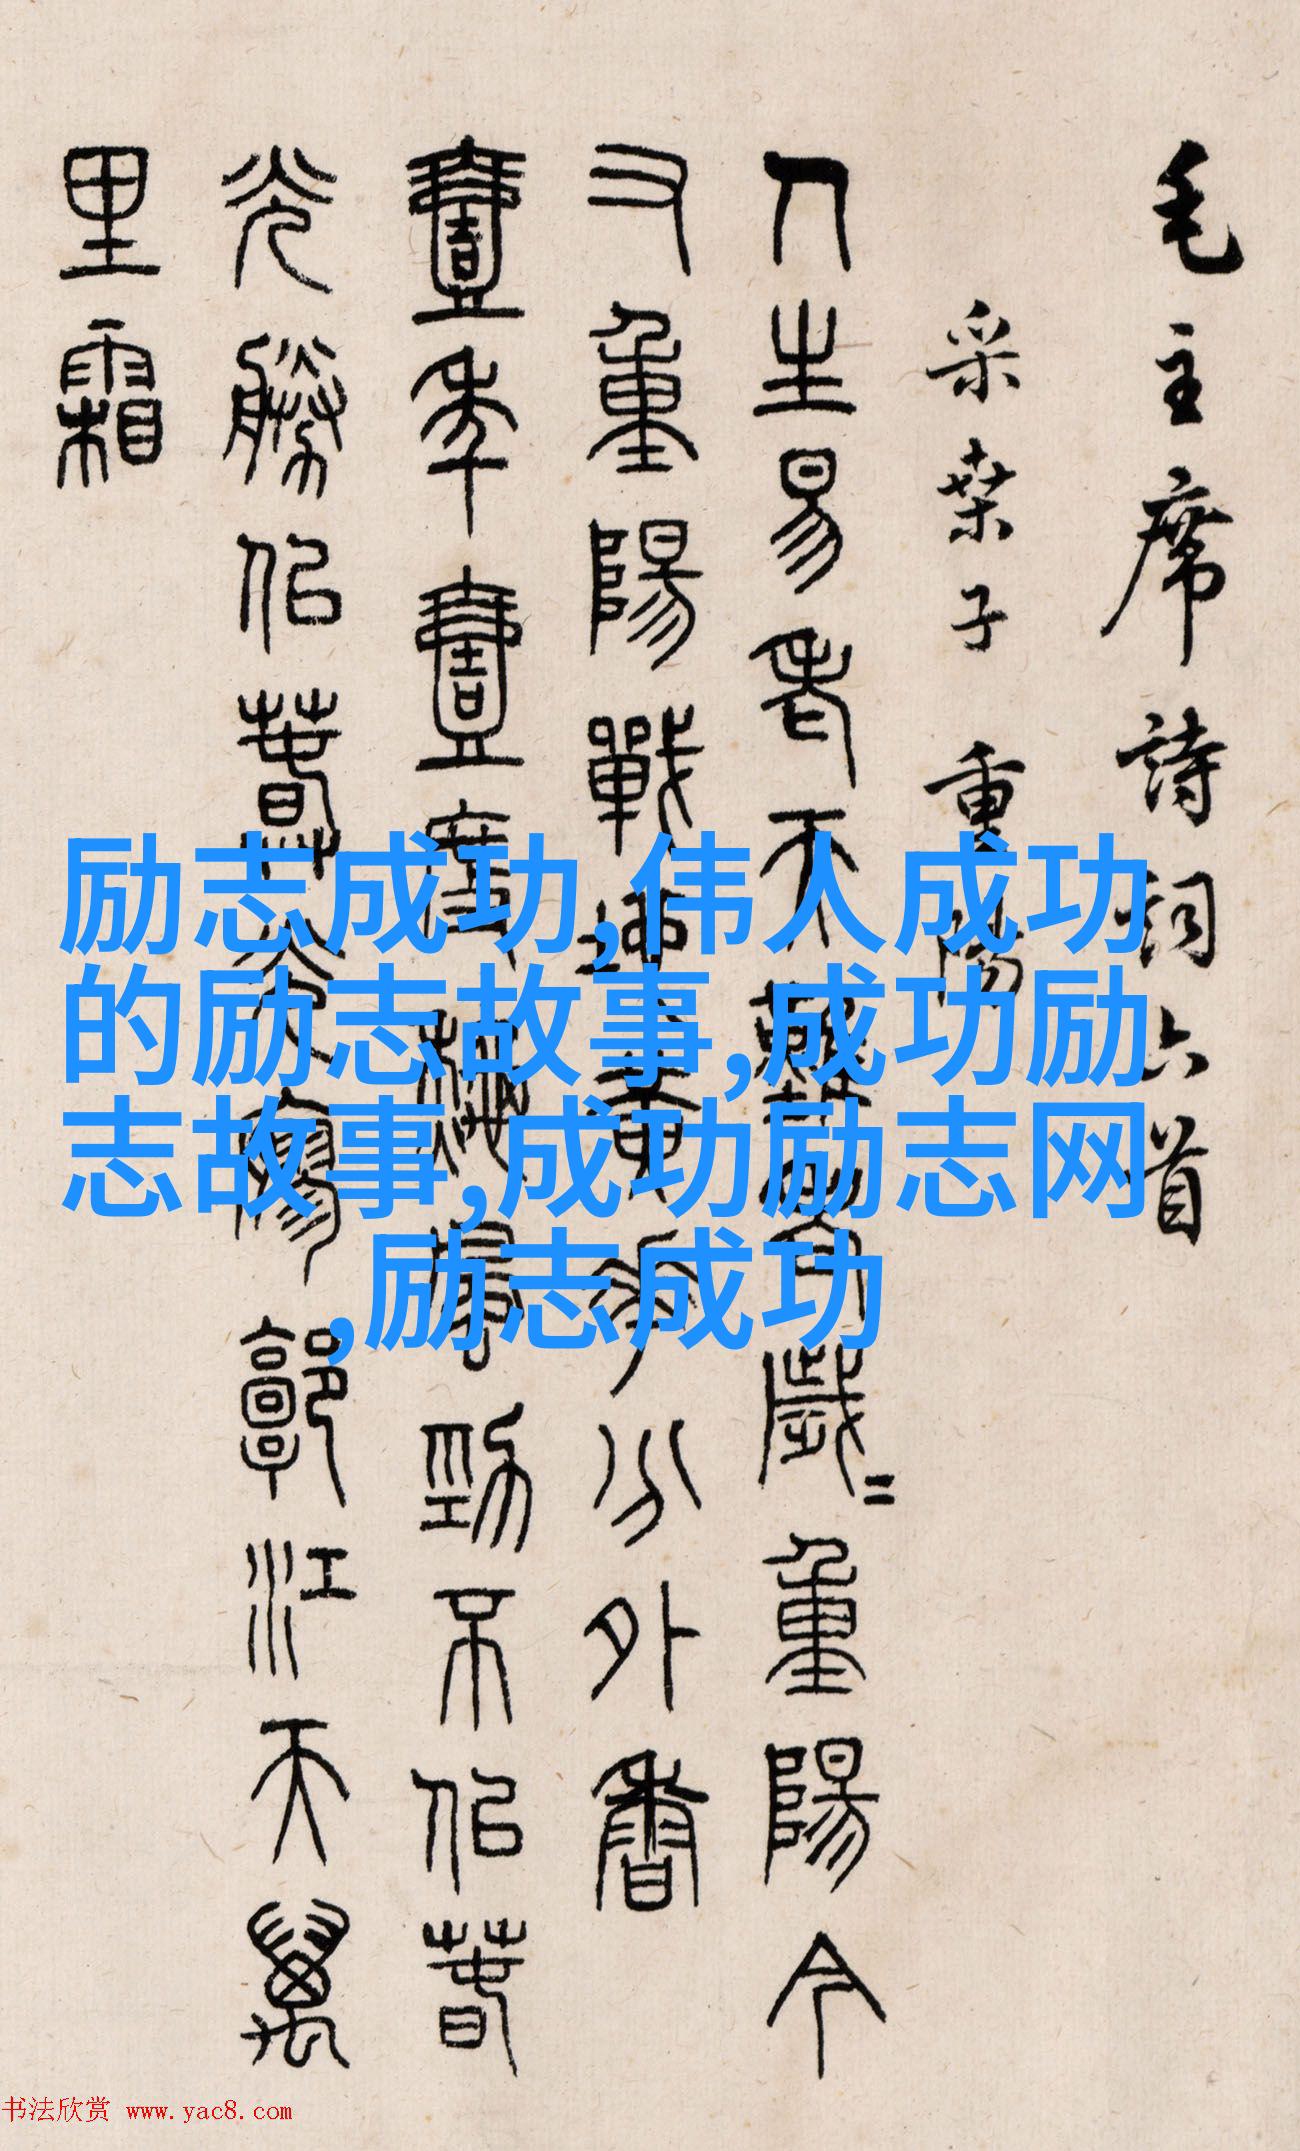 毛主席詩詞六首
采桒子 重陽
人生易老天難老歲〻重陽今
又重陽戰地黃花分外香
壹年壹度秋風勁不似春
光勝似春光寥郭江天萬
里霜
励志成功,伟人成功
的励志故事,成功励
志故事,成功励志网
,励志成功
书法欣赏 www.yac8.com